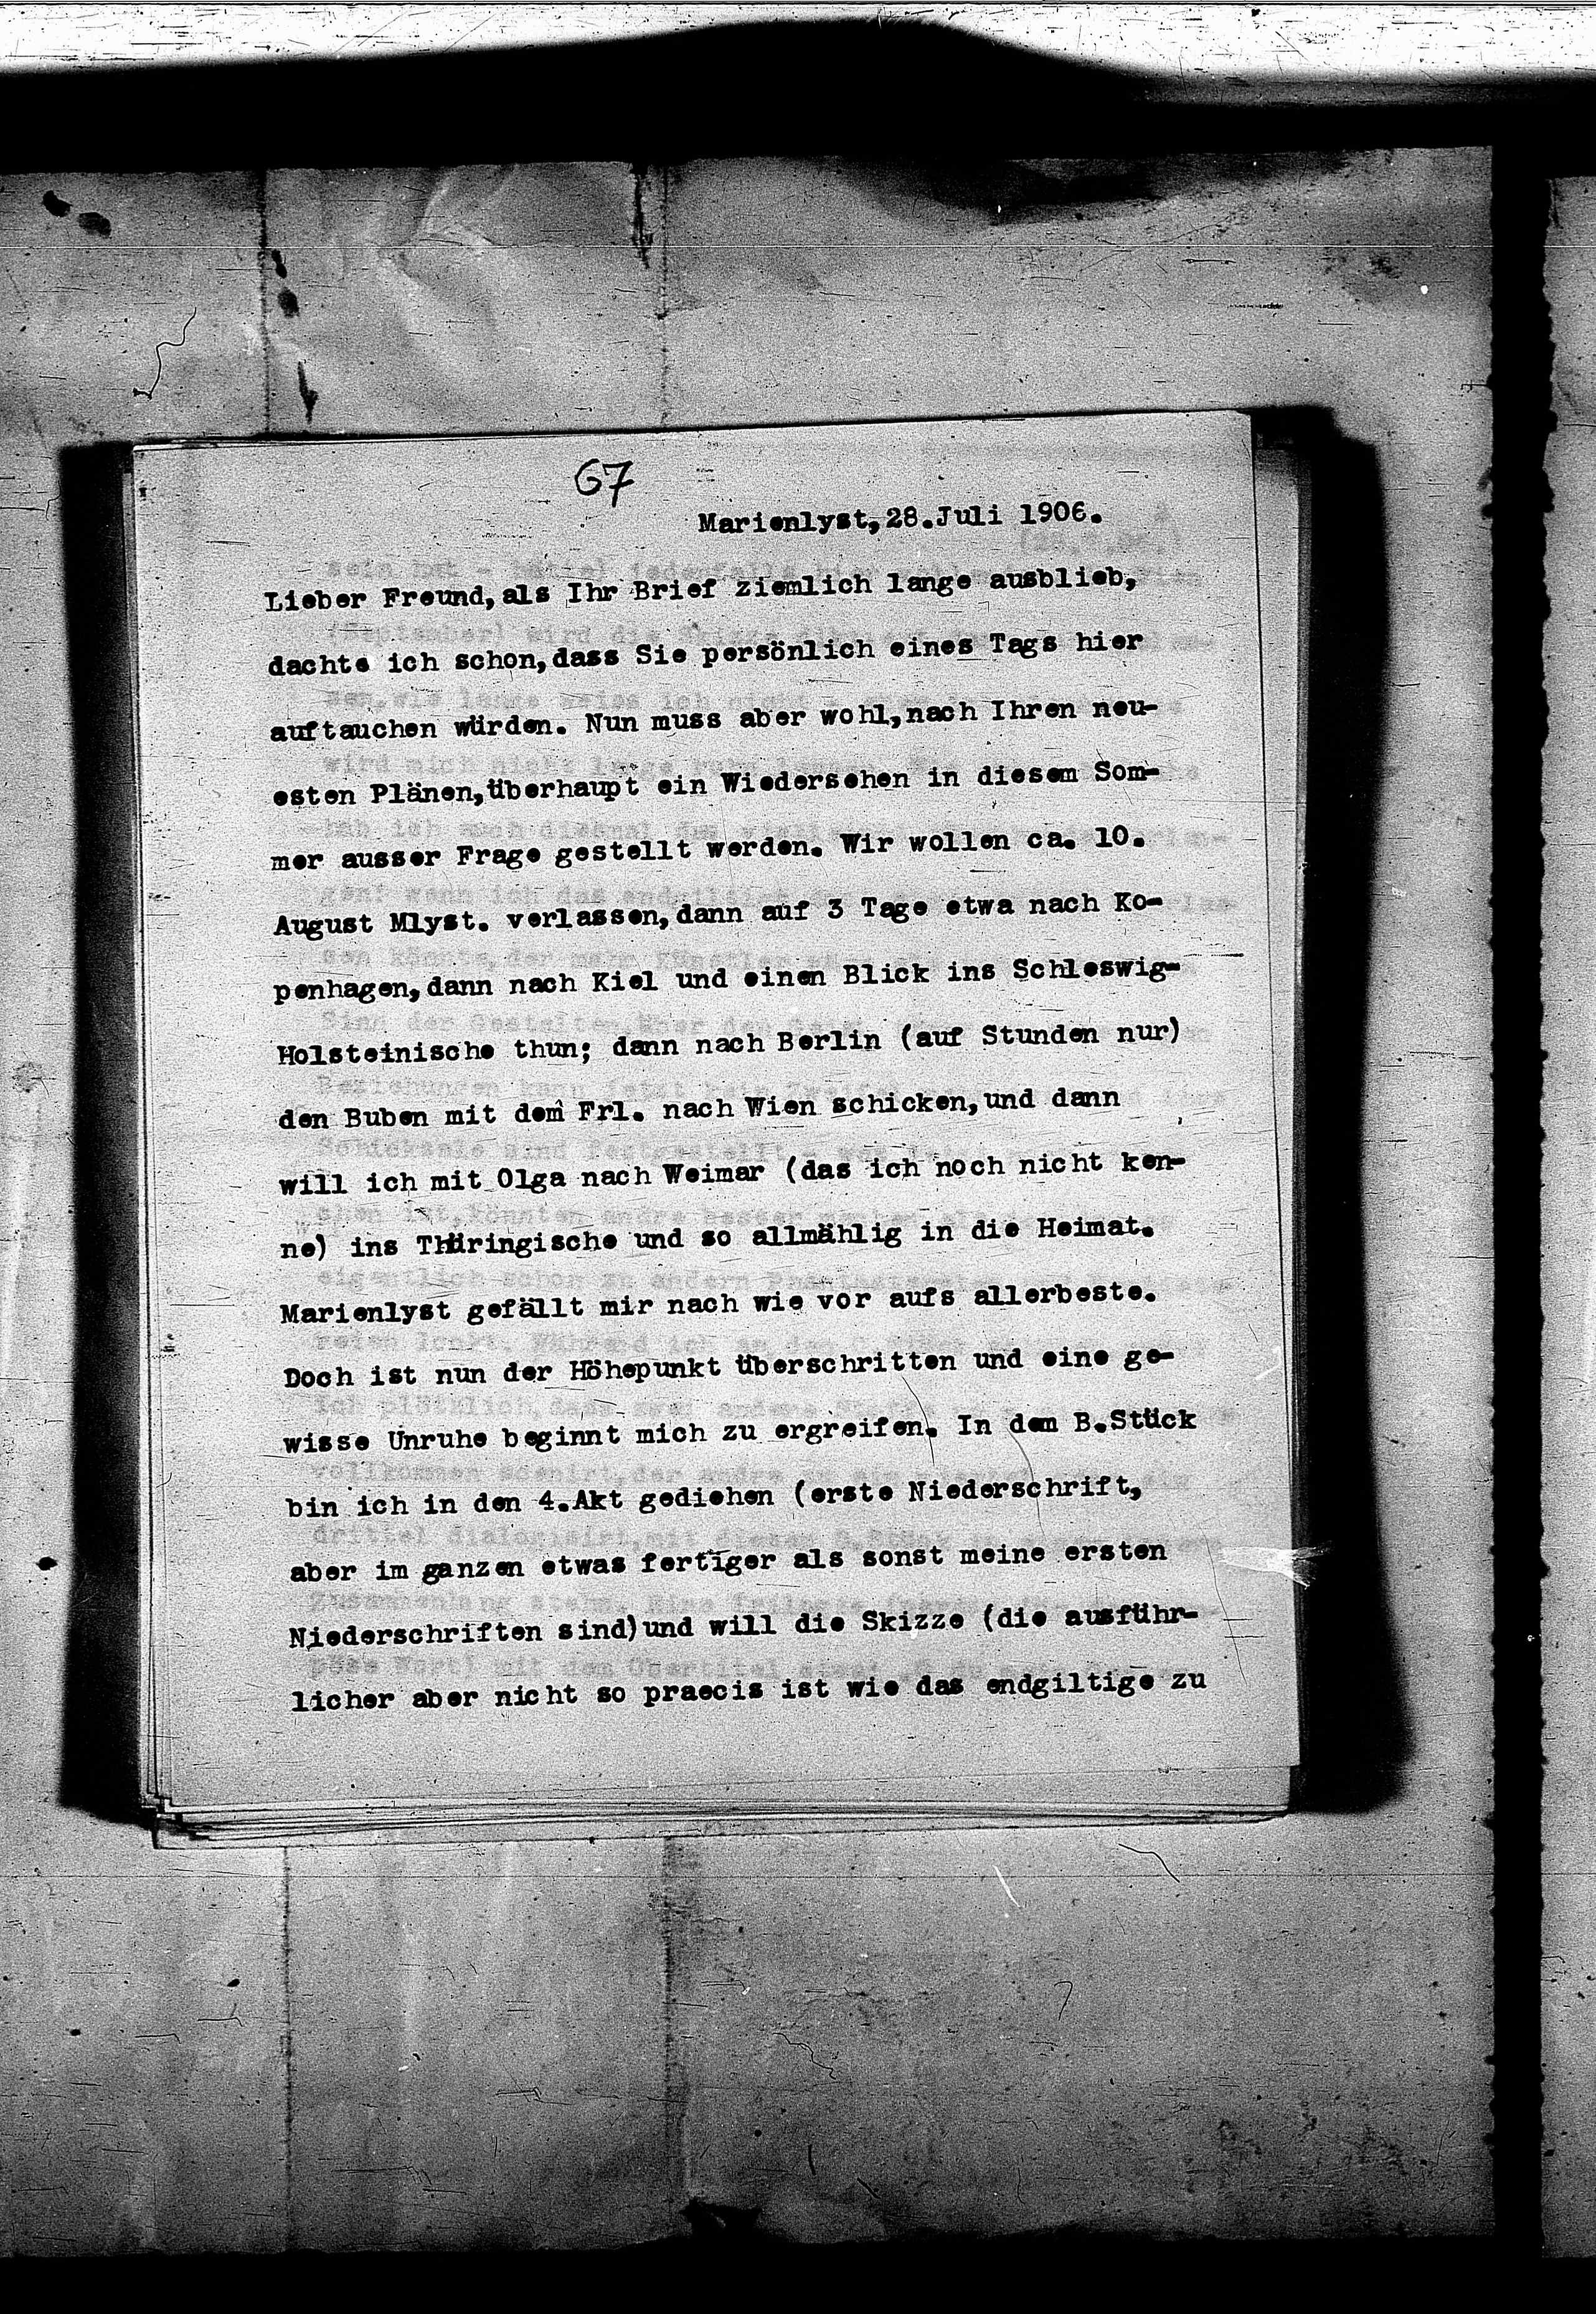 67
Marienlyst,28.Juli 1906.
Lieber Freund,als Ihr Brief ziemlich lange ausblieb,
dachte ich schon,dass Sie persönlich eines Tags hier
auftauchen würden. Nun muss aber wohl,nach Ihren neu-
esten Plänen,überhaupt ein Wiedersehen in diesem Som-
mer ausser Frage gestellt werden. Wir wollen ca. 10.
August Mlyst. verlassen,dann auf 3 Tage etwa nach Ko-
penhagen,dann nach Kiel und einen Blick ins Schleswig-
Holsteinische thun; dann nach Berlin (auf Stunden nur)
den Buben mit dem Frl. nach Wien schicken,und dann
will ich mit Olga nach Weimar (das ich noch nicht ken-
ne) ins Thüringische und so allmählig in die Heimat.
Marienlyst gefällt mir nach wie vor aufs allerbeste.
Doch ist nun der Höhepunkt überschritten und eine ge-
wisse Unruhe beginnt mich zu ergreifen. In dem B.Stück
bin ich in den 4.Akt gediehen (erste Niederschrift,
aber im ganzen etwas fertiger als sonst meine ersten
Niederschriften sind)und will die Skizze (die ausführ-
licher aber nicht so praecis ist wie das endgiltige zu